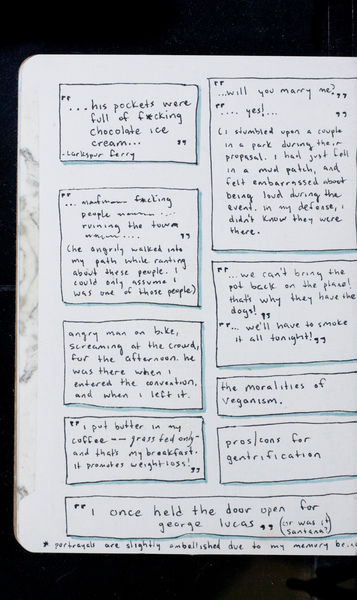 "... his pockets were
full of f*cking
chocolate ice
cream... "
- Larkspur Ferry
"... f*cking
people
ruining the town
"
(he angrily walked into
my path while ranting
about these people. I
could only assume I
was one of those people)
angry man on bike,
screaming at the crowd,
for the afternoon. he
was there when I
entered the convention,
and when I left it.
"I put butter in my
coffee -- grass fed only -
and that's my breakfast.
it promotes weight loss!"
"...will you marry me?"
"... yes!..."
(I stumbled upon a couple
in a park during their
proposal. I had just fell
in a mud patch, and
felt embarrassed about
being loud during the
event. in my defense, I
didn't know they were
there.
"...we can't bring the
pot back on the plane!
that's why they have the
dogs!"
"... we'll have to smoke
it all tonight!"
the moralities of
veganism.
pros/cons for
gentrification
"I once held the door open for
george lucas" (or was it
santana?)
* portrayals are slightly embellished due to my memory being